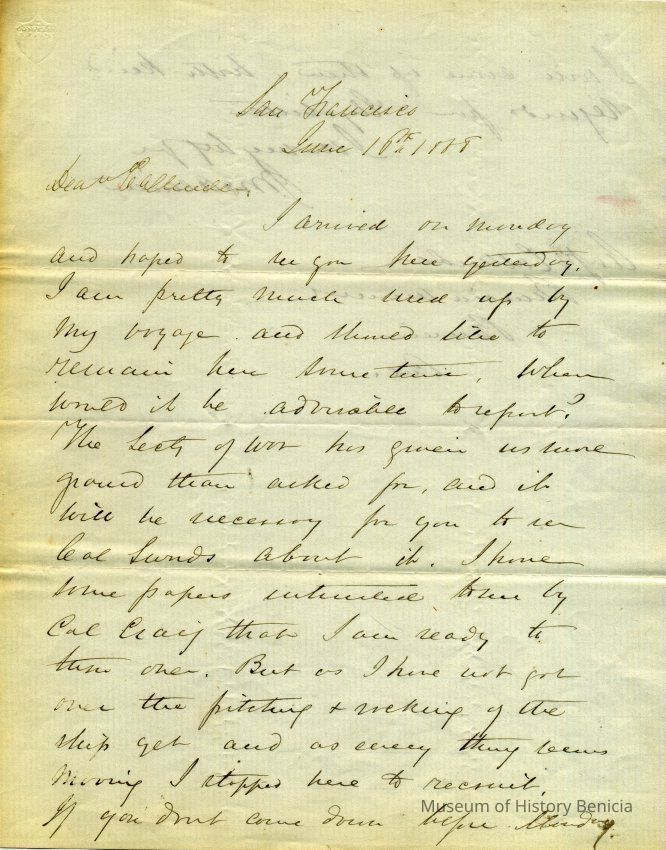 San Francisco
June 16th 1858
Dear Callender,
I arrived on monday
and hoped to see you here yesterday.
I am pretty much used up by
my voyage and should like to
remain here some time, when
would it be advisable to report?
The Secty of War has given us more
ground than asked for, and it
will be necessary for you to see
Col Swords about it. I have
some papers intrusted to me by
Col Craig that I am ready to
turn over. But as I have not got
over the pitching & rocking of the
ship yet and as every thing seems
moving I stopped here to recruit.
If you dont come down before Monday
Museum of History Benicia